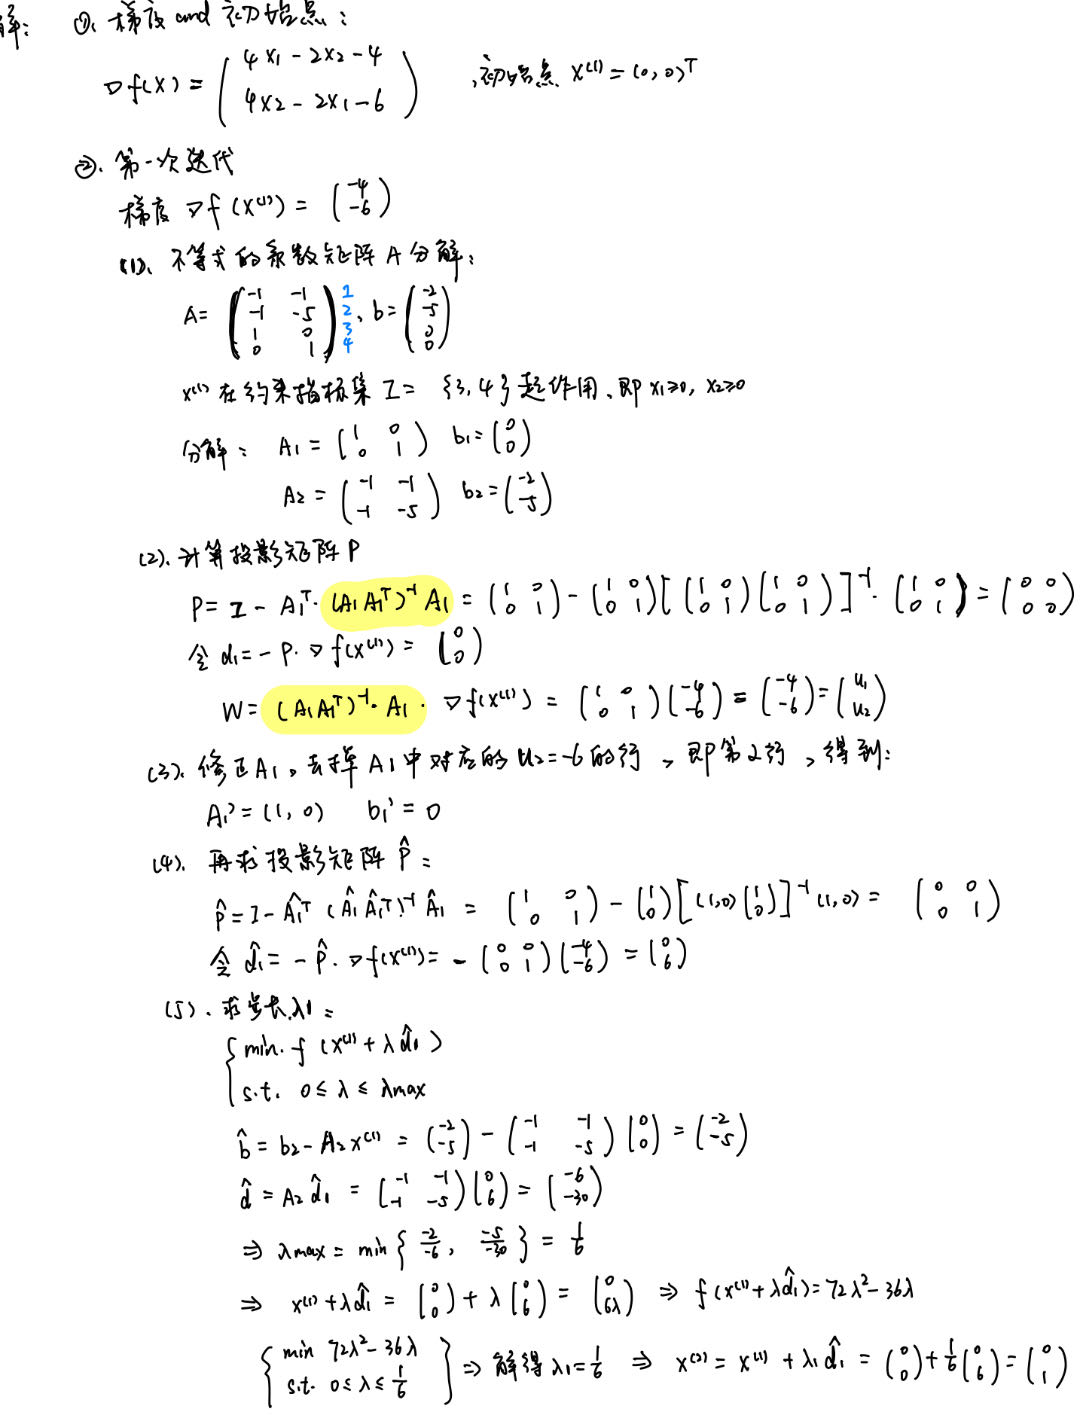 解: ①. 梯度 and 初始点:
∇f(x) = ( 4x₁ - 2x₂ - 4 ; 4x₂ - 2x₁ - 6 ) ,初始点 x⁽¹⁾ = (0, 0)ᵀ
②. 第一次迭代
梯度 ∇f(x⁽¹⁾) = ( -4 ; -6 )
(1). 不等式的系数矩阵 A 分解:
A = ( -1 -1 ; -1 -5 ; 1 0 ; 0 1 ) 1 2 3 4 , b = ( -2 ; -5 ; 0 ; 0 )
x⁽¹⁾ 在约束指标集 I = {3, 4} 起作用, 即 x₁≥0, x₂≥0
分解: A₁ = ( 1 0 ; 0 1 ) b₁ = ( 0 ; 0 )
A₂ = ( -1 -1 ; -1 -5 ) b₂ = ( -2 ; -5 )
(2). 计算投影矩阵 P
P = I - A₁ᵀ · (A₁A₁ᵀ)⁻¹ A₁ = ( 1 0 ; 0 1 ) - ( 1 0 ; 0 1 ) [ ( 1 0 ; 0 1 ) ( 1 0 ; 0 1 ) ]⁻¹ · ( 1 0 ; 0 1 ) = ( 0 0 ; 0 0 )
令 d₁ = - P · ∇f(x⁽¹⁾) = ( 0 ; 0 )
W = (A₁A₁ᵀ)⁻¹ · A₁ · ∇f(x⁽¹⁾) = ( 1 0 ; 0 1 ) ( -4 ; -6 ) = ( -4 ; -6 ) = ( u₁ ; u₂ )
(3). 修正 A₁, 去掉 A₁ 中对应的 u₂ = -6 的行, 即第2行, 得到:
A₁' = (1, 0) b₁' = 0
(4). 再求投影矩阵 P̂:
P̂ = I - Â₁ᵀ (Â₁ Â₁ᵀ)⁻¹ Â₁ = ( 1 0 ; 0 1 ) - ( 1 ; 0 ) [ (1,0) ( 1 ; 0 ) ]⁻¹ (1,0) = ( 0 0 ; 0 1 )
令 d̂₁ = - P̂ · ∇f(x⁽¹⁾) = - ( 0 0 ; 0 1 ) ( -4 ; -6 ) = ( 0 ; 6 )
(5). 求步长 λ₁:
{ min. f(x⁽¹⁾ + λd̂₁)
s.t. 0 ≤ λ ≤ λmax
b̂ = b₂ - A₂x⁽¹⁾ = ( -2 ; -5 ) - ( -1 -1 ; -1 -5 ) ( 0 ; 0 ) = ( -2 ; -5 )
d̂ = A₂d̂₁ = ( -1 -1 ; -1 -5 ) ( 0 ; 6 ) = ( -6 ; -30 )
⇒ λmax = min { -2/-6 , -5/-30 } = 1/6
⇒ x⁽¹⁾ + λd̂₁ = ( 0 ; 0 ) + λ ( 0 ; 6 ) = ( 0 ; 6λ ) ⇒ f(x⁽¹⁾ + λd̂₁) = 72λ² - 36λ
{ min 72λ² - 36λ ; s.t. 0 ≤ λ ≤ 1/6 } ⇒ 解得 λ₁ = 1/6 ⇒ x⁽²⁾ = x⁽¹⁾ + λ₁d̂₁ = ( 0 ; 0 ) + 1/6 ( 0 ; 6 ) = ( 0 ; 1 )